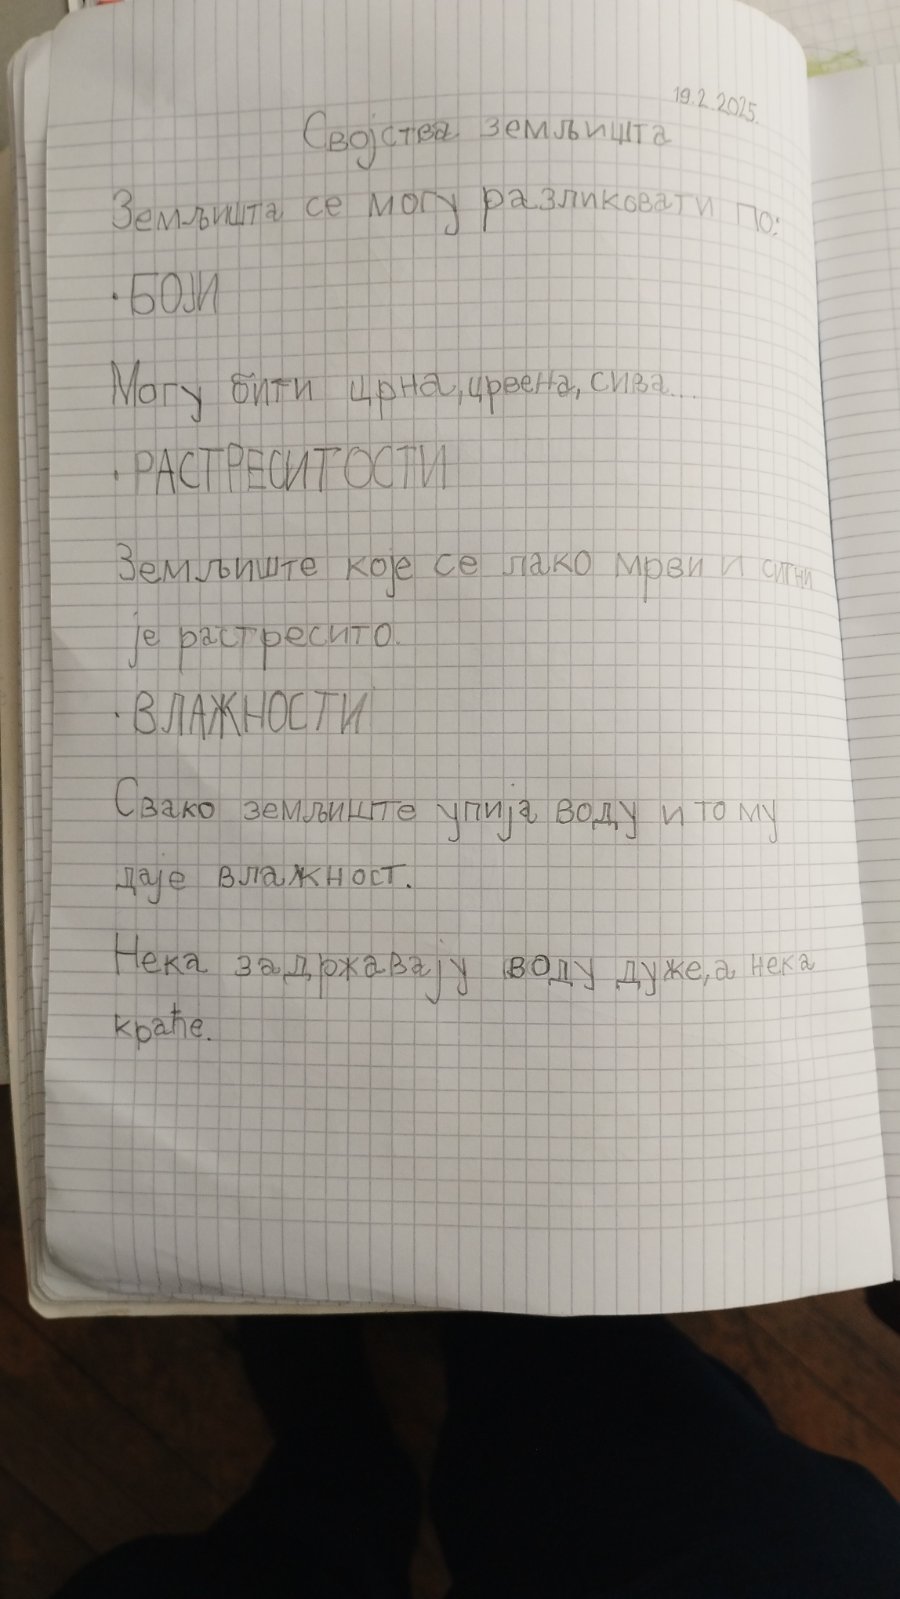 19.2.2025.
Својства земљишта
Земљишта се могу разликовати по:
·БОЈИ
Могу бити црна, црвена, сива...
·РАСТРЕСИТОСТИ
Земљиште које се лако мрви и ситни
је растресито.
·ВЛАЖНОСТИ
Свако земљиште упија воду и то му
даје влажност.
Нека задржавају воду дуже, а нека
краће.